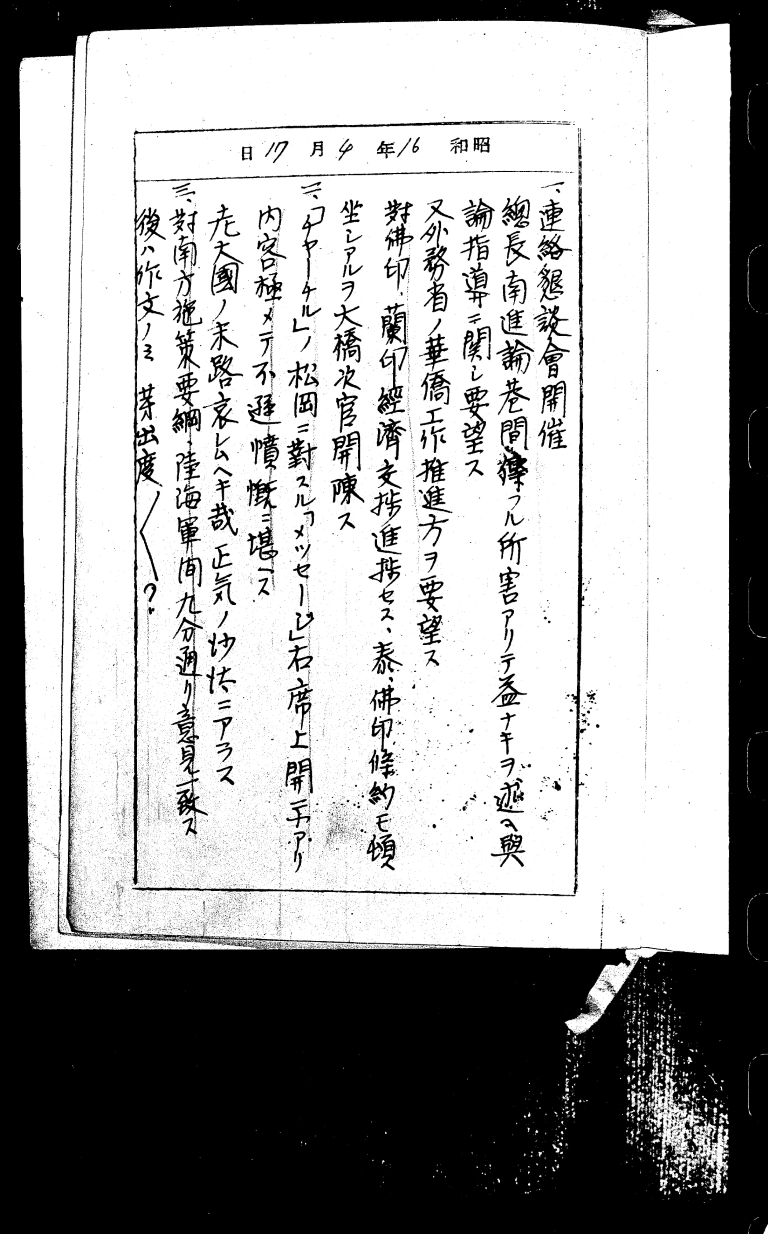 昭和16年4月17日
一、連絡懇談會開催
總長、南進論巷間傳フル所害アリテ益ナキヲ述ヘ輿
論指導ニ関シ要望ス
又外務省ノ華僑工作推進方ヲ要望ス
對佛印、蘭印経濟交捗進捗セス、泰、佛印條約モ頓
坐シアルヲ大橋次官開陳ス
二、「チャーチル」ノ松岡ニ對スル「メッセージ」右席上開示アリ
内容極メテ不遜憤慨ニ堪ヘス
老大國ノ末路哀レムヘキ哉正気ノ沙汰ニアラス
三、對南方施策要綱、陸海軍間九分通リ意見一致ス
後ハ作文ノミ 芽出度〱?